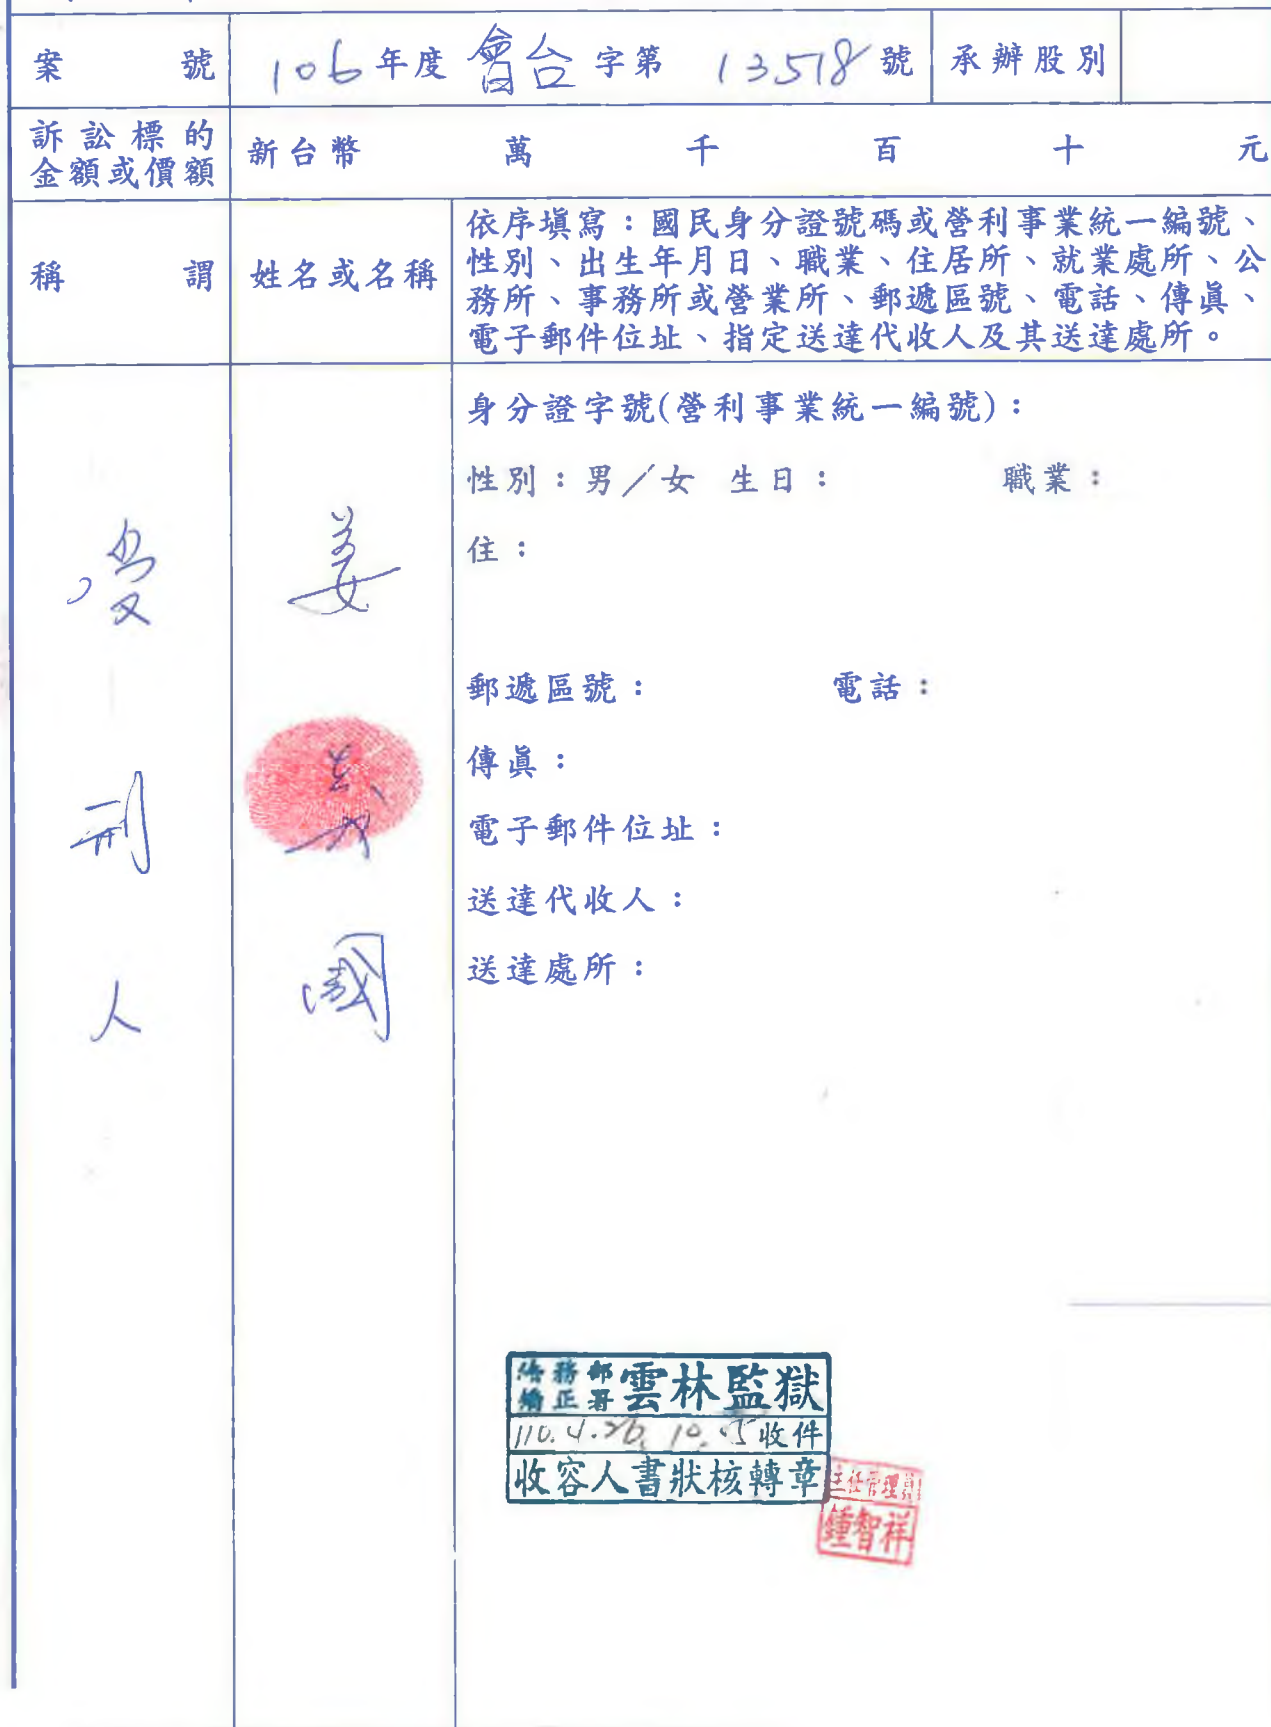 案號 106年度會台字第 13518號 承辦股別
訴訟標的金額或價額 新台幣 萬 千 百 十 元
稱謂 姓名或名稱
依序填寫：國民身分證號碼或營利事業統一編號、
性別、出生年月日、職業、住居所、就業處所、公
務所、事務所或營業所、郵遞區號、電話、傳眞、
電子郵件位址、指定送達代收人及其送達處所。
受刑人
姜義國
身分證字號(營利事業統一編號)：
性別：男／女 生日： 職業：
住：
郵遞區號： 電話：
傳眞：
電子郵件位址：
送達代收人：
送達處所：
法務部矯正署雲林監獄
110.4.26. 收件
收容人書狀核轉章
主任管理員
鍾智祥